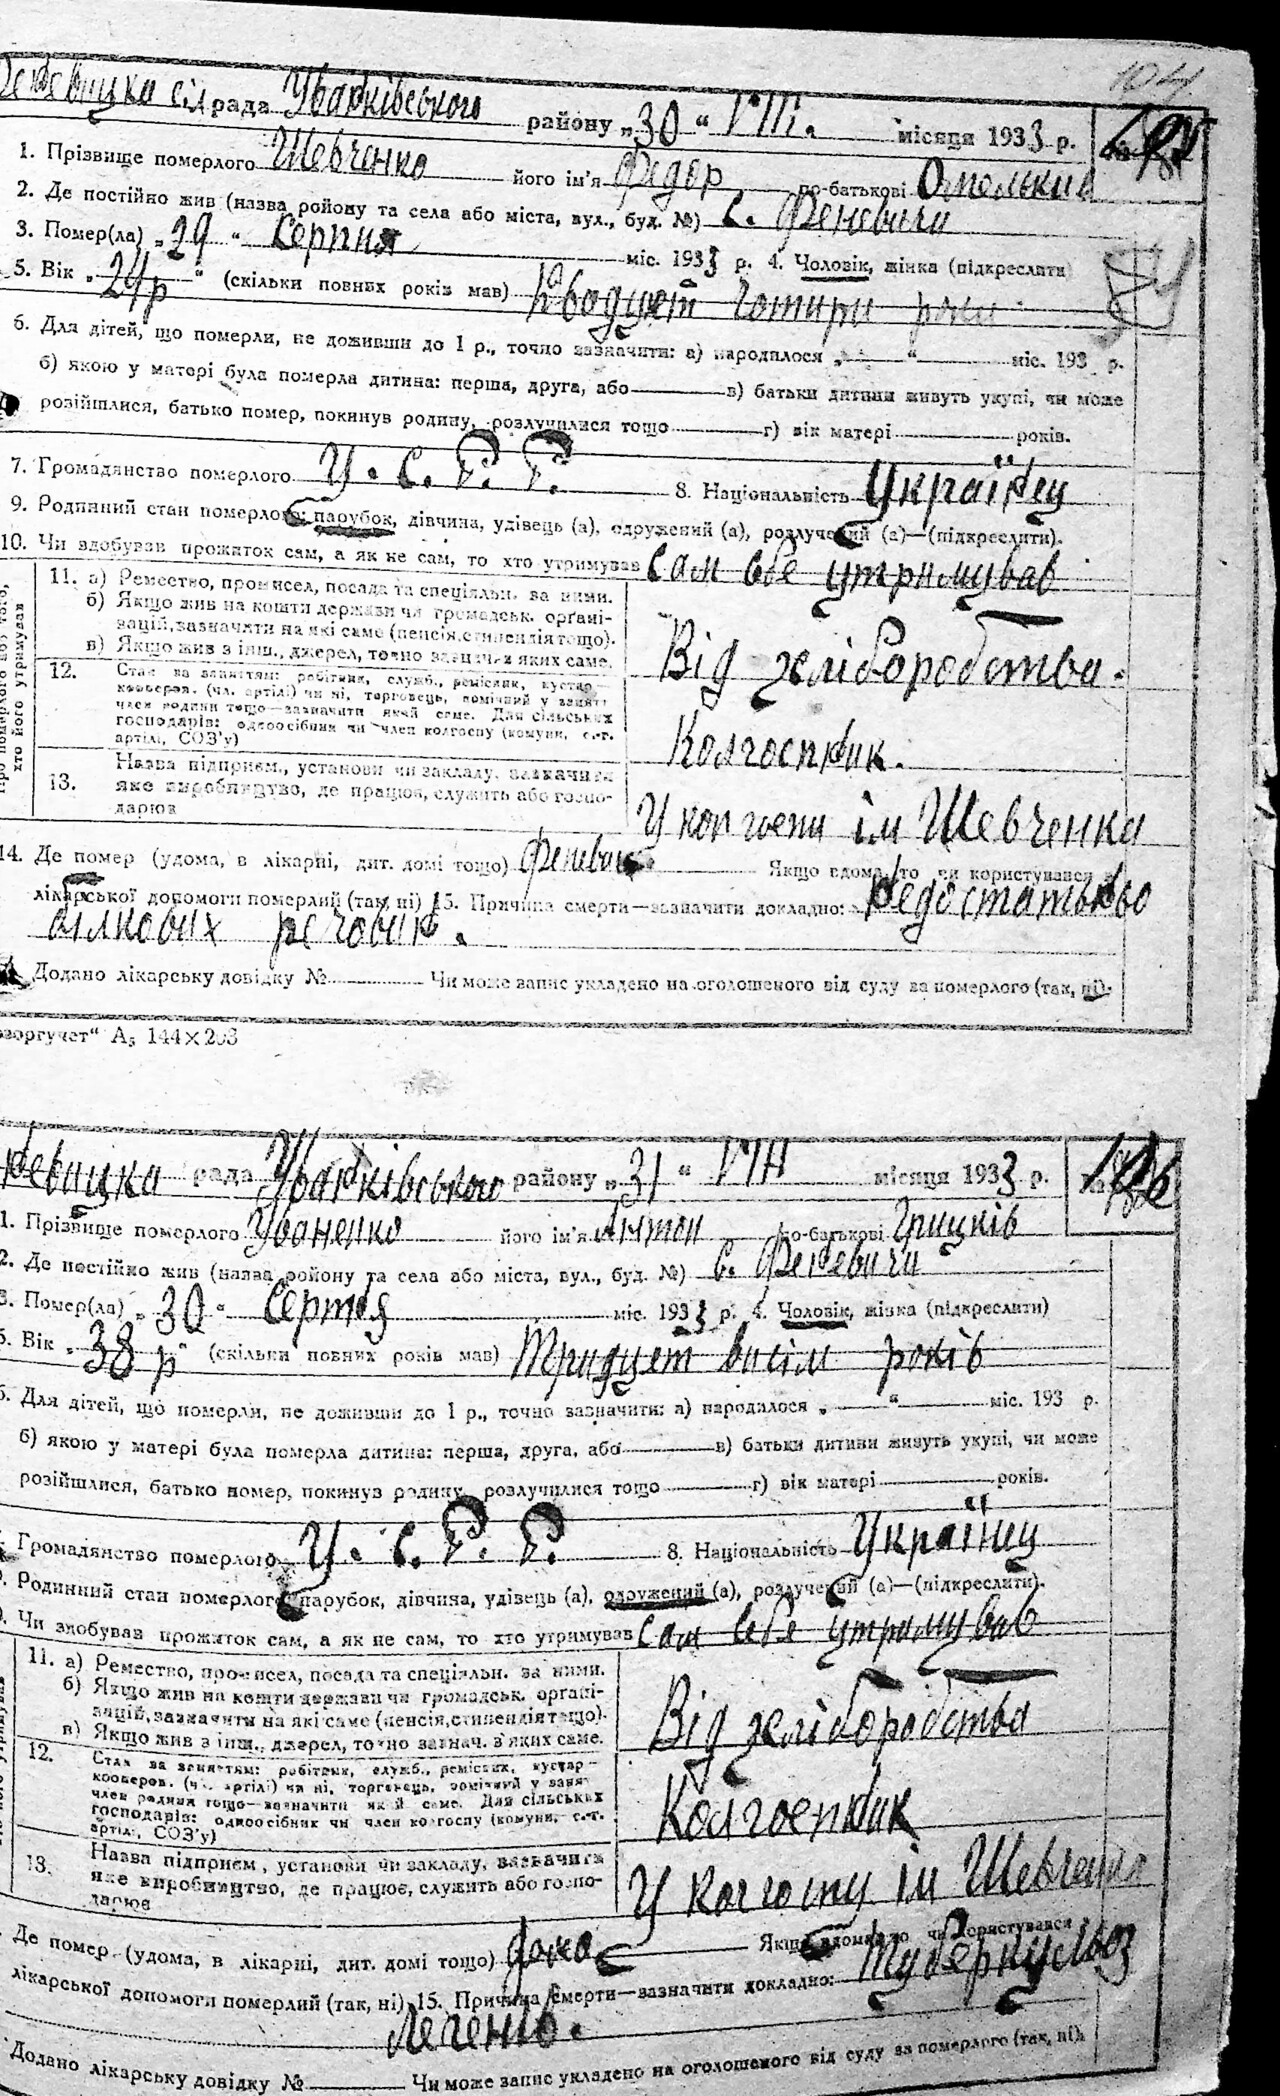 104
сілрада Іваньківського району „30“ VIII. місяця 1933 р.
1. Прізвище померлого Шевченко його ім'я Федор по-батькові Омельків
2. Де постійно жив (назва району та села або міста, вул., буд. №) с. Феневичи
3. Помер(ла) „29“ Серпня міс. 1933 р. 4. Чоловік, жінка (підкреслити)
5. Вік „24р“ (скільки повних років мав) Двадцет чотири роки
6. Для дітей, що померли, не доживши до 1 р., точно зазначити: а) народилося „ “ міс. 193 р.
б) якою у матері була померла дитина: перша, друга, або в) батьки дитини живуть укупі, чи може
розійшлися, батько помер, покинув родину, розлучилися тощо г) вік матері років.
7. Громадянство померлого У. С. Р. Р. 8. Національність Українец
9. Родинний стан померлого: парубок, дівчина, удівець (а), одружений (а), розлучений (а)—(підкреслити).
10. Чи здобував прожиток сам, а як не сам, то хто утримував Сам себе утримував
11. а) Ремество, промисел, посада та спеціяльн. за ними.
б) Якщо жив на кошти держави чи громадськ. орґані-
зацій, зазначити на які саме (пенсія, стипендія тощо).
в) Якщо жив з інш., джерел, точно зазнач. з яких саме.
Від хліборобства.
12. Стан за заняттям: робітник, служб., ремісник, кустар—
кооперов. (чл. артілі) чи ні, торговець, помічний у занят.
член родини тощо—зазначити який саме. Для сільських
господарів: одноосібник чи член колгоспу (комуни, с.-г.
артілі, СОЗ'у)
Колгоспник.
13. Назва підприєм., установи чи закладу, зазначити
яке виробництво, де працює, служить або госпо-
дарює
У колгоспи ім Шевченка
14. Де помер (удома, в лікарні, дит. домі тощо) Якщо вдома, то чи користувався з
лікарської допомоги померлий (так, ні) 15. Причина смерти—зазначити докладно:
білкових речовин.
Додано лікарську довідку № Чи може запис укладено на оголошеного від суду за померлого (так, ні).
А5 144×203
рада Іваньківського району „31“ VIII місяця 1933 р. 106
1. Прізвище померлого Іваненко його ім'я Антон по-батькові Грицків
2. Де постійно жив (назва району та села або міста, вул., буд. №) с. Феневичи
3. Помер(ла) „30“ Серпня міс. 1933 р. 4. Чоловік, жінка (підкреслити)
5. Вік „38 р“ (скільки повних років мав) Тридцет висім років
6. Для дітей, що померли, не доживши до 1 р., точно зазначити: а) народилося „ “ міс. 193 р.
б) якою у матері була померла дитина: перша, друга, або в) батьки дитини живуть укупі, чи може
розійшлися, батько помер, покинув родину, розлучилися тощо г) вік матері років.
Громадянство померлого У. С. Р. Р. 8. Національність Українец
Родинний стан померлого: парубок, дівчина, удівець (а), одружений (а), розлучений (а)—(підкреслити).
Чи здобував прожиток сам, а як не сам, то хто утримував Сам себе утримував
11. а) Ремество, промисел, посада та спеціяльн. за ними.
б) Якщо жив на кошти держави чи громадськ. орґані-
зацій, зазначити на які саме (пенсія, стипендія тощо).
в) Якщо жив з інш., джерел, точно зазнач. з яких саме.
Від хліборобства
12. Стан за заняттям: робітник, служб., ремісник, кустар—
кооперов. (чл. артілі) чи ні, торговець, помічний у занят.
член родини тощо—зазначити який саме. Для сільських
господарів: одноосібник чи член колгоспу (комуни, с.-г.
артілі, СОЗ'у)
Колгоспник
13. Назва підприєм., установи чи закладу, зазначити
яке виробництво, де працює, служить або госпо-
дарює
У колгоспу ім Шевченка
Де помер (удома, в лікарні, дит. домі тощо) дома Якщо вдома, то чи користувався
лікарської допомоги померлий (так, ні) 15. Причина смерти—зазначити докладно: Туберкульоз
легенів.
Додано лікарську довідку № Чи може запис укладено на оголошеного від суду за померлого (так, ні).